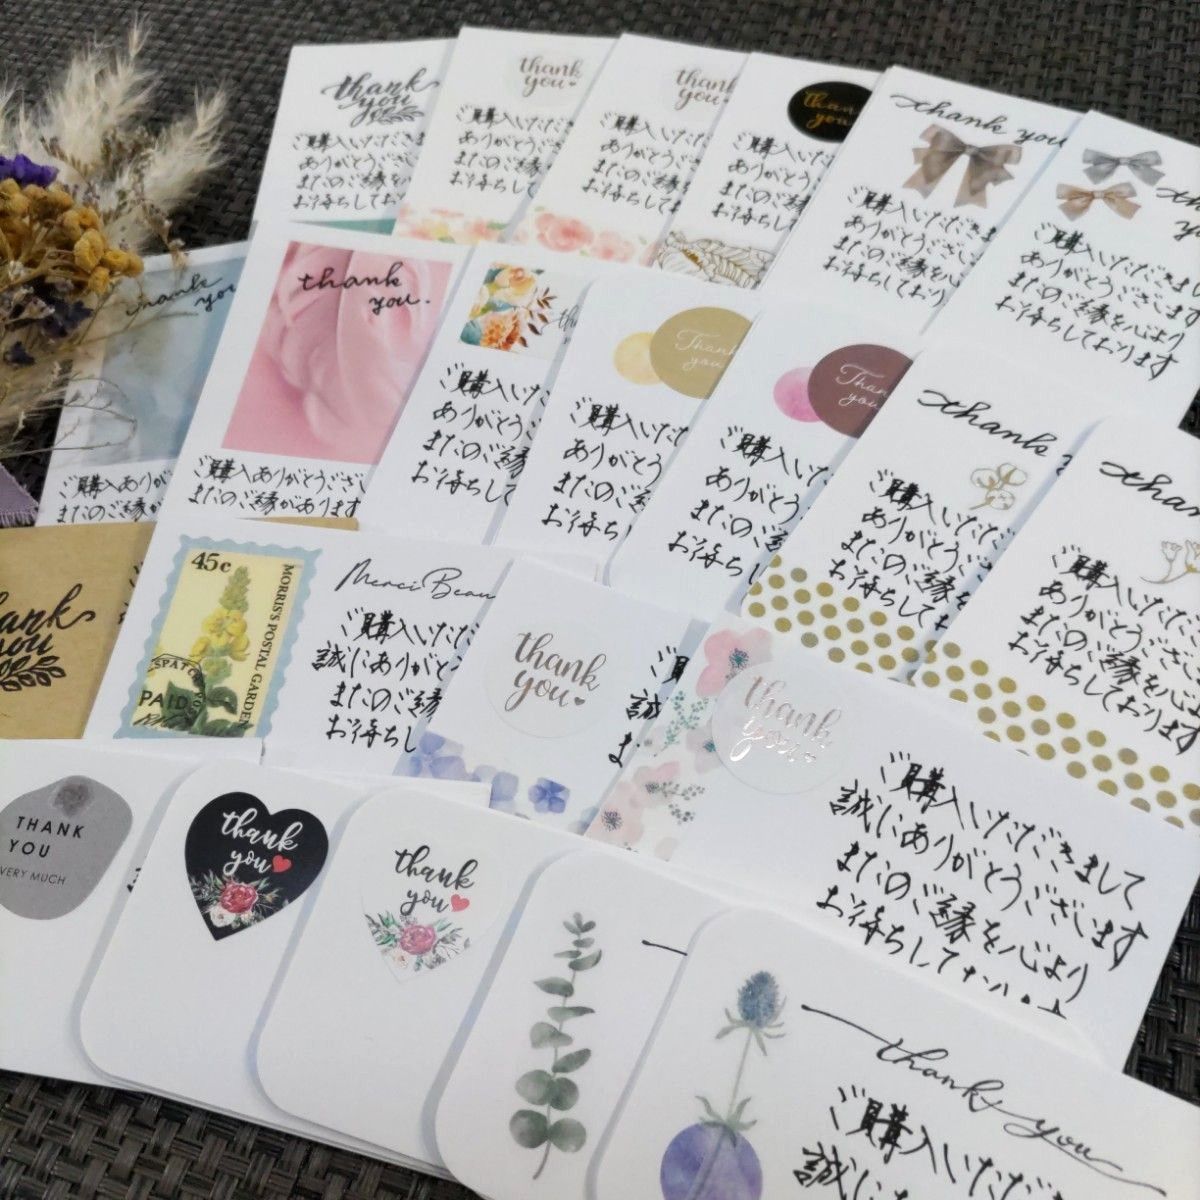 thank
you
ご購入いただきま
ありがとうござい
またのご縁を
お待ちして
thank
you
ご購入いただ
ありがとう
またのご縁
お待ちして
thank
you
ご購入いただ
ありがとう
またのご縁
お待ちして
thank
you
ご購入いただき
ありがとうござ
またのご縁を
お待ちして
thank you
ご購入いただきま
ありがとうござい
またのご縁を心
お待ちしており
thank
y
ご購入いただきまし
ありがとうございます
またのご縁を心より
お待ちしております
thank
you
ご購入ありがと
またのご縁が
thank
you.
ご購入ありがとうござい
またのご縁があります
ご購入いた
ありがとう
またのご縁
お待ちし
Thank
you
ご購入いただ
ありがとう
またのご縁
お待ちし
Than
you
ご購入いただ
ありがとう
またのご縁
お待ちして
thank
ご購入いただ
ありがとうござ
またのご縁を
お待ちして
than
ご購入いただきま
ありがとうござい
またのご縁を心
お待ちしております
ank
you
45c
MORRIS'S POSTAL GARDEN
PAID
Merci Beau
ご購入いただ
誠にありがと
またのご縁
お待ちし
thank
you
ご
誠
ま
thank
you
ご購入いただきまして
誠にありがとうございます
またのご縁を心より
お待ちして
THANK
YOU
VERY MUCH
thank
you
thank
you
thank you
ご購入いただき
誠に